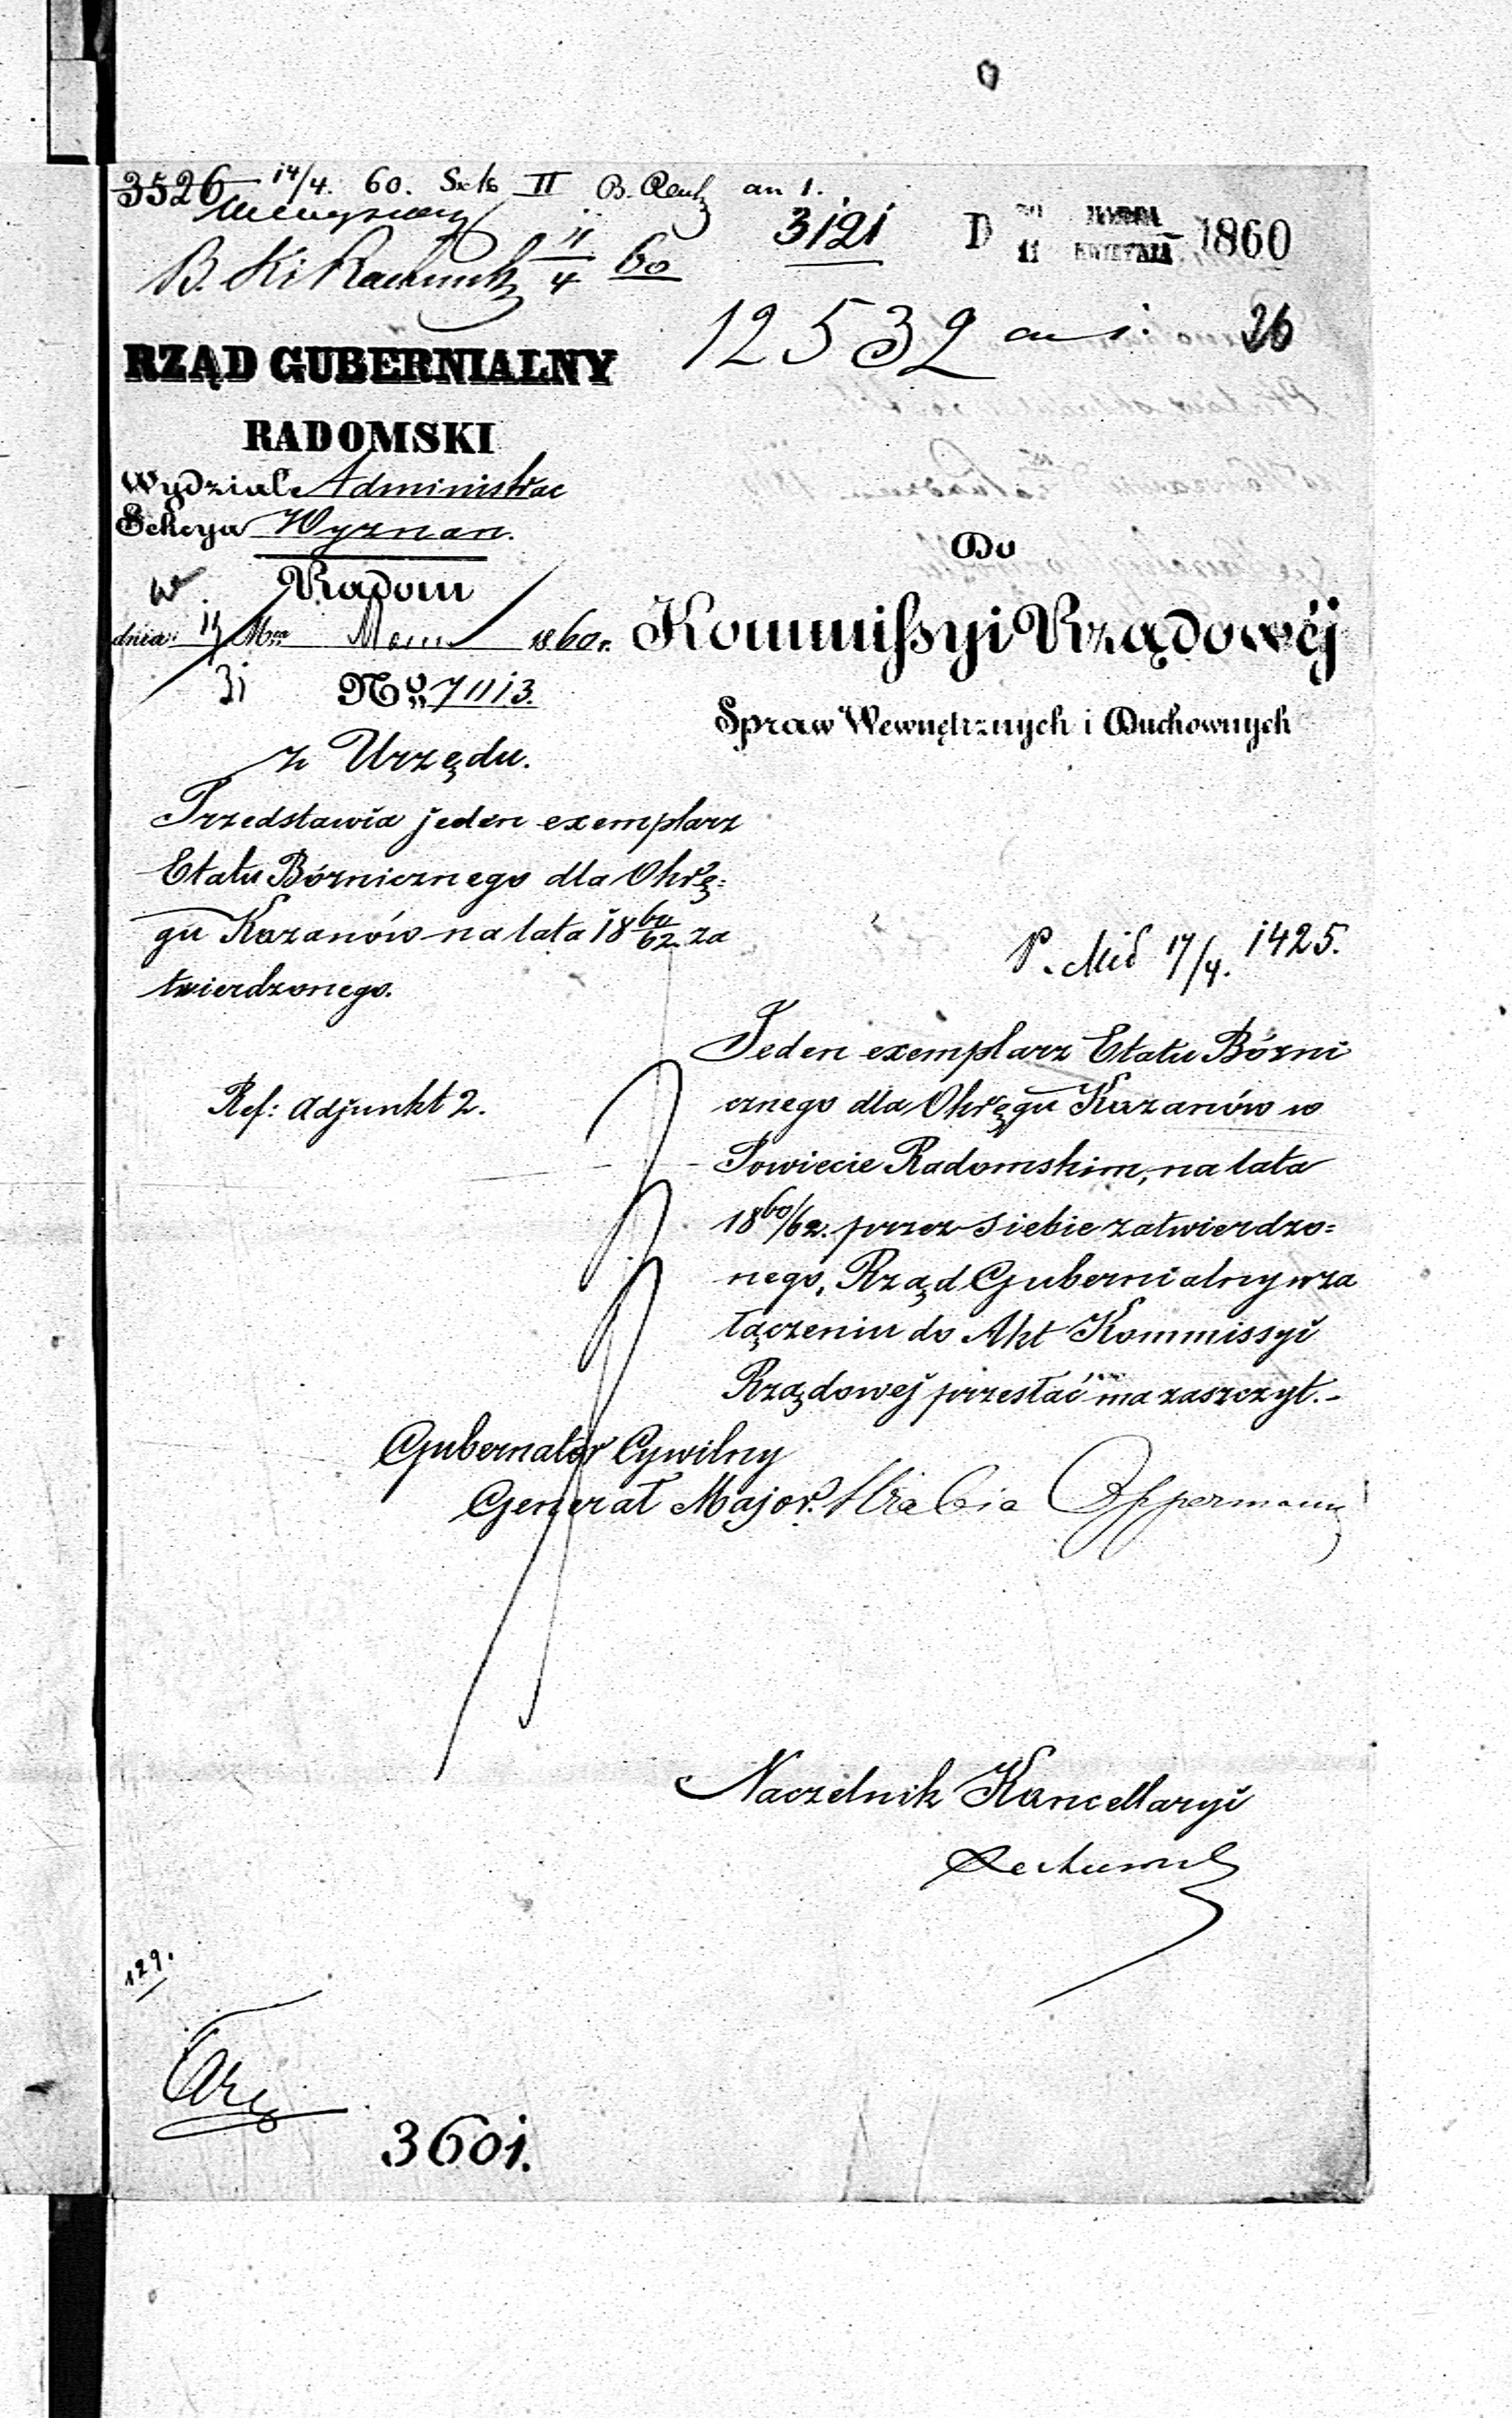 3526 14/4. 60. Sek II B. an 1.
3121 D 30 MARCA 11 KWIETNIA 1860
B. 11/4 60
12532 an 1. 26
RZĄD GUBERNIALNY
RADOMSKI
Wydział Administrac
Sekcya Wyznan.
w Radom
dnia 19/31 Mca 1860 r.
No 7113.
z Urzędu.
Przedstawia jeden exemplarz
Etatu Bóżnicznego dla Okrę=
gu Kazanów na lata 18 60/62 za
twierdzonego.
Ref: Adjunkt 2.
Do
Kommissyi Rządowéj
Spraw Wewnętrznych i Duchownych
P. 17/4. 1425.
Jeden exemplarz Etatu Bóżni
cznego dla Okręgu Kazanów w
Powiecie Radomskim, na lata
18 60/62. przez siebie zatwierdzo=
nego, Rząd Gubernialny w za
łączeniu do Akt Kommissyi
Rządowej przesłać ma zaszczyt.-
Gubernator Cywilny
Generał Major. Hrabia Oppermann
Naczelnik Kancellaryi
129.
3601.